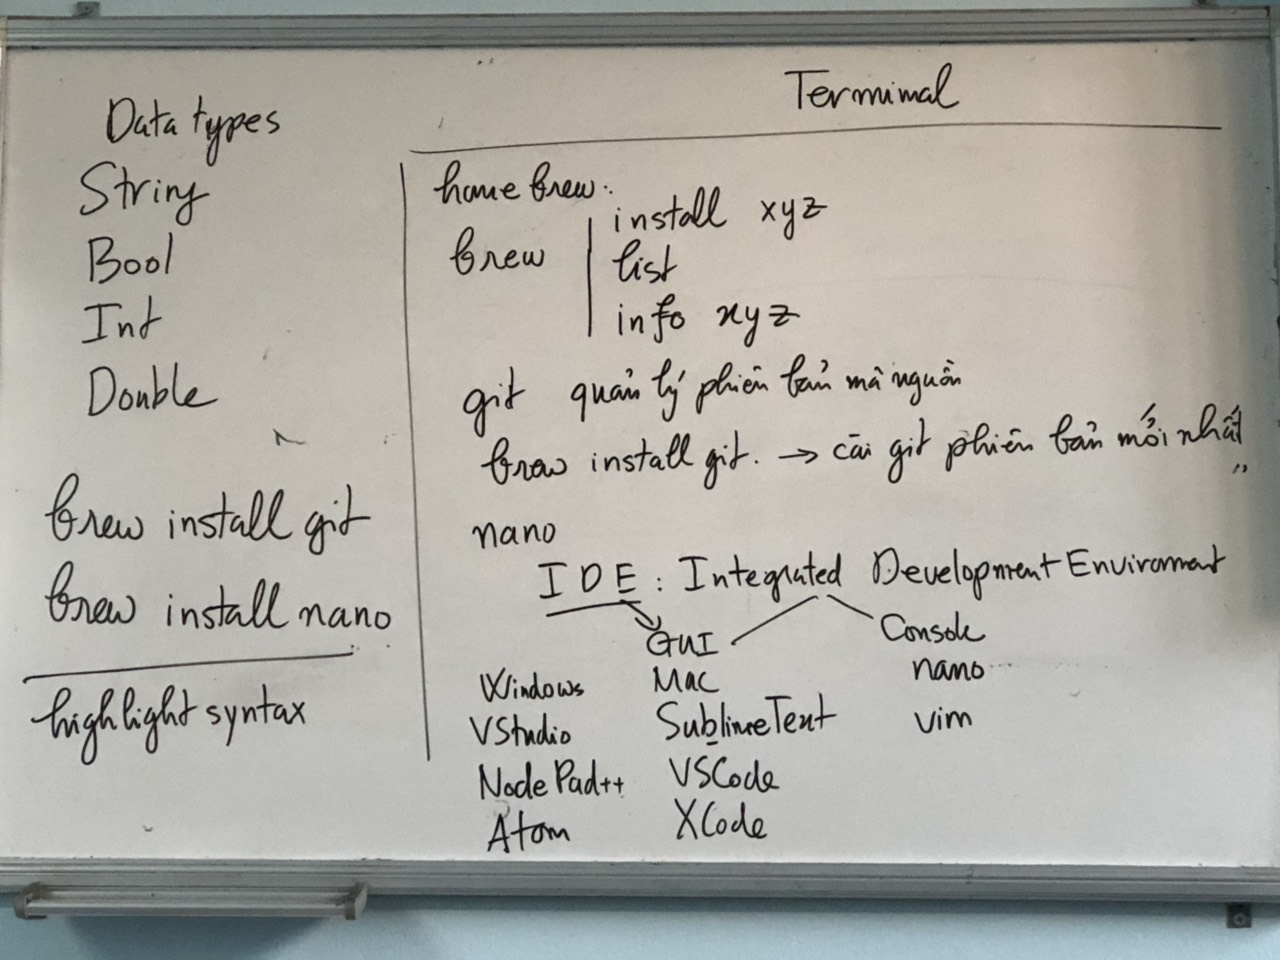 Data types
String
Bool
Int
Double
brew install git
brew install nano
highlight syntax
Terminal
home brew:
brew
install xyz
list
info xyz
git quản lý phiên bản mã nguồn
brew install git. → cài git phiên bản mới nhất
nano
IDE: Integrated Development Environment
GUI
Console
Windows
Mac
nano
VStudio
SublimeText
vim
NodePad++
VSCode
Atom
XCode